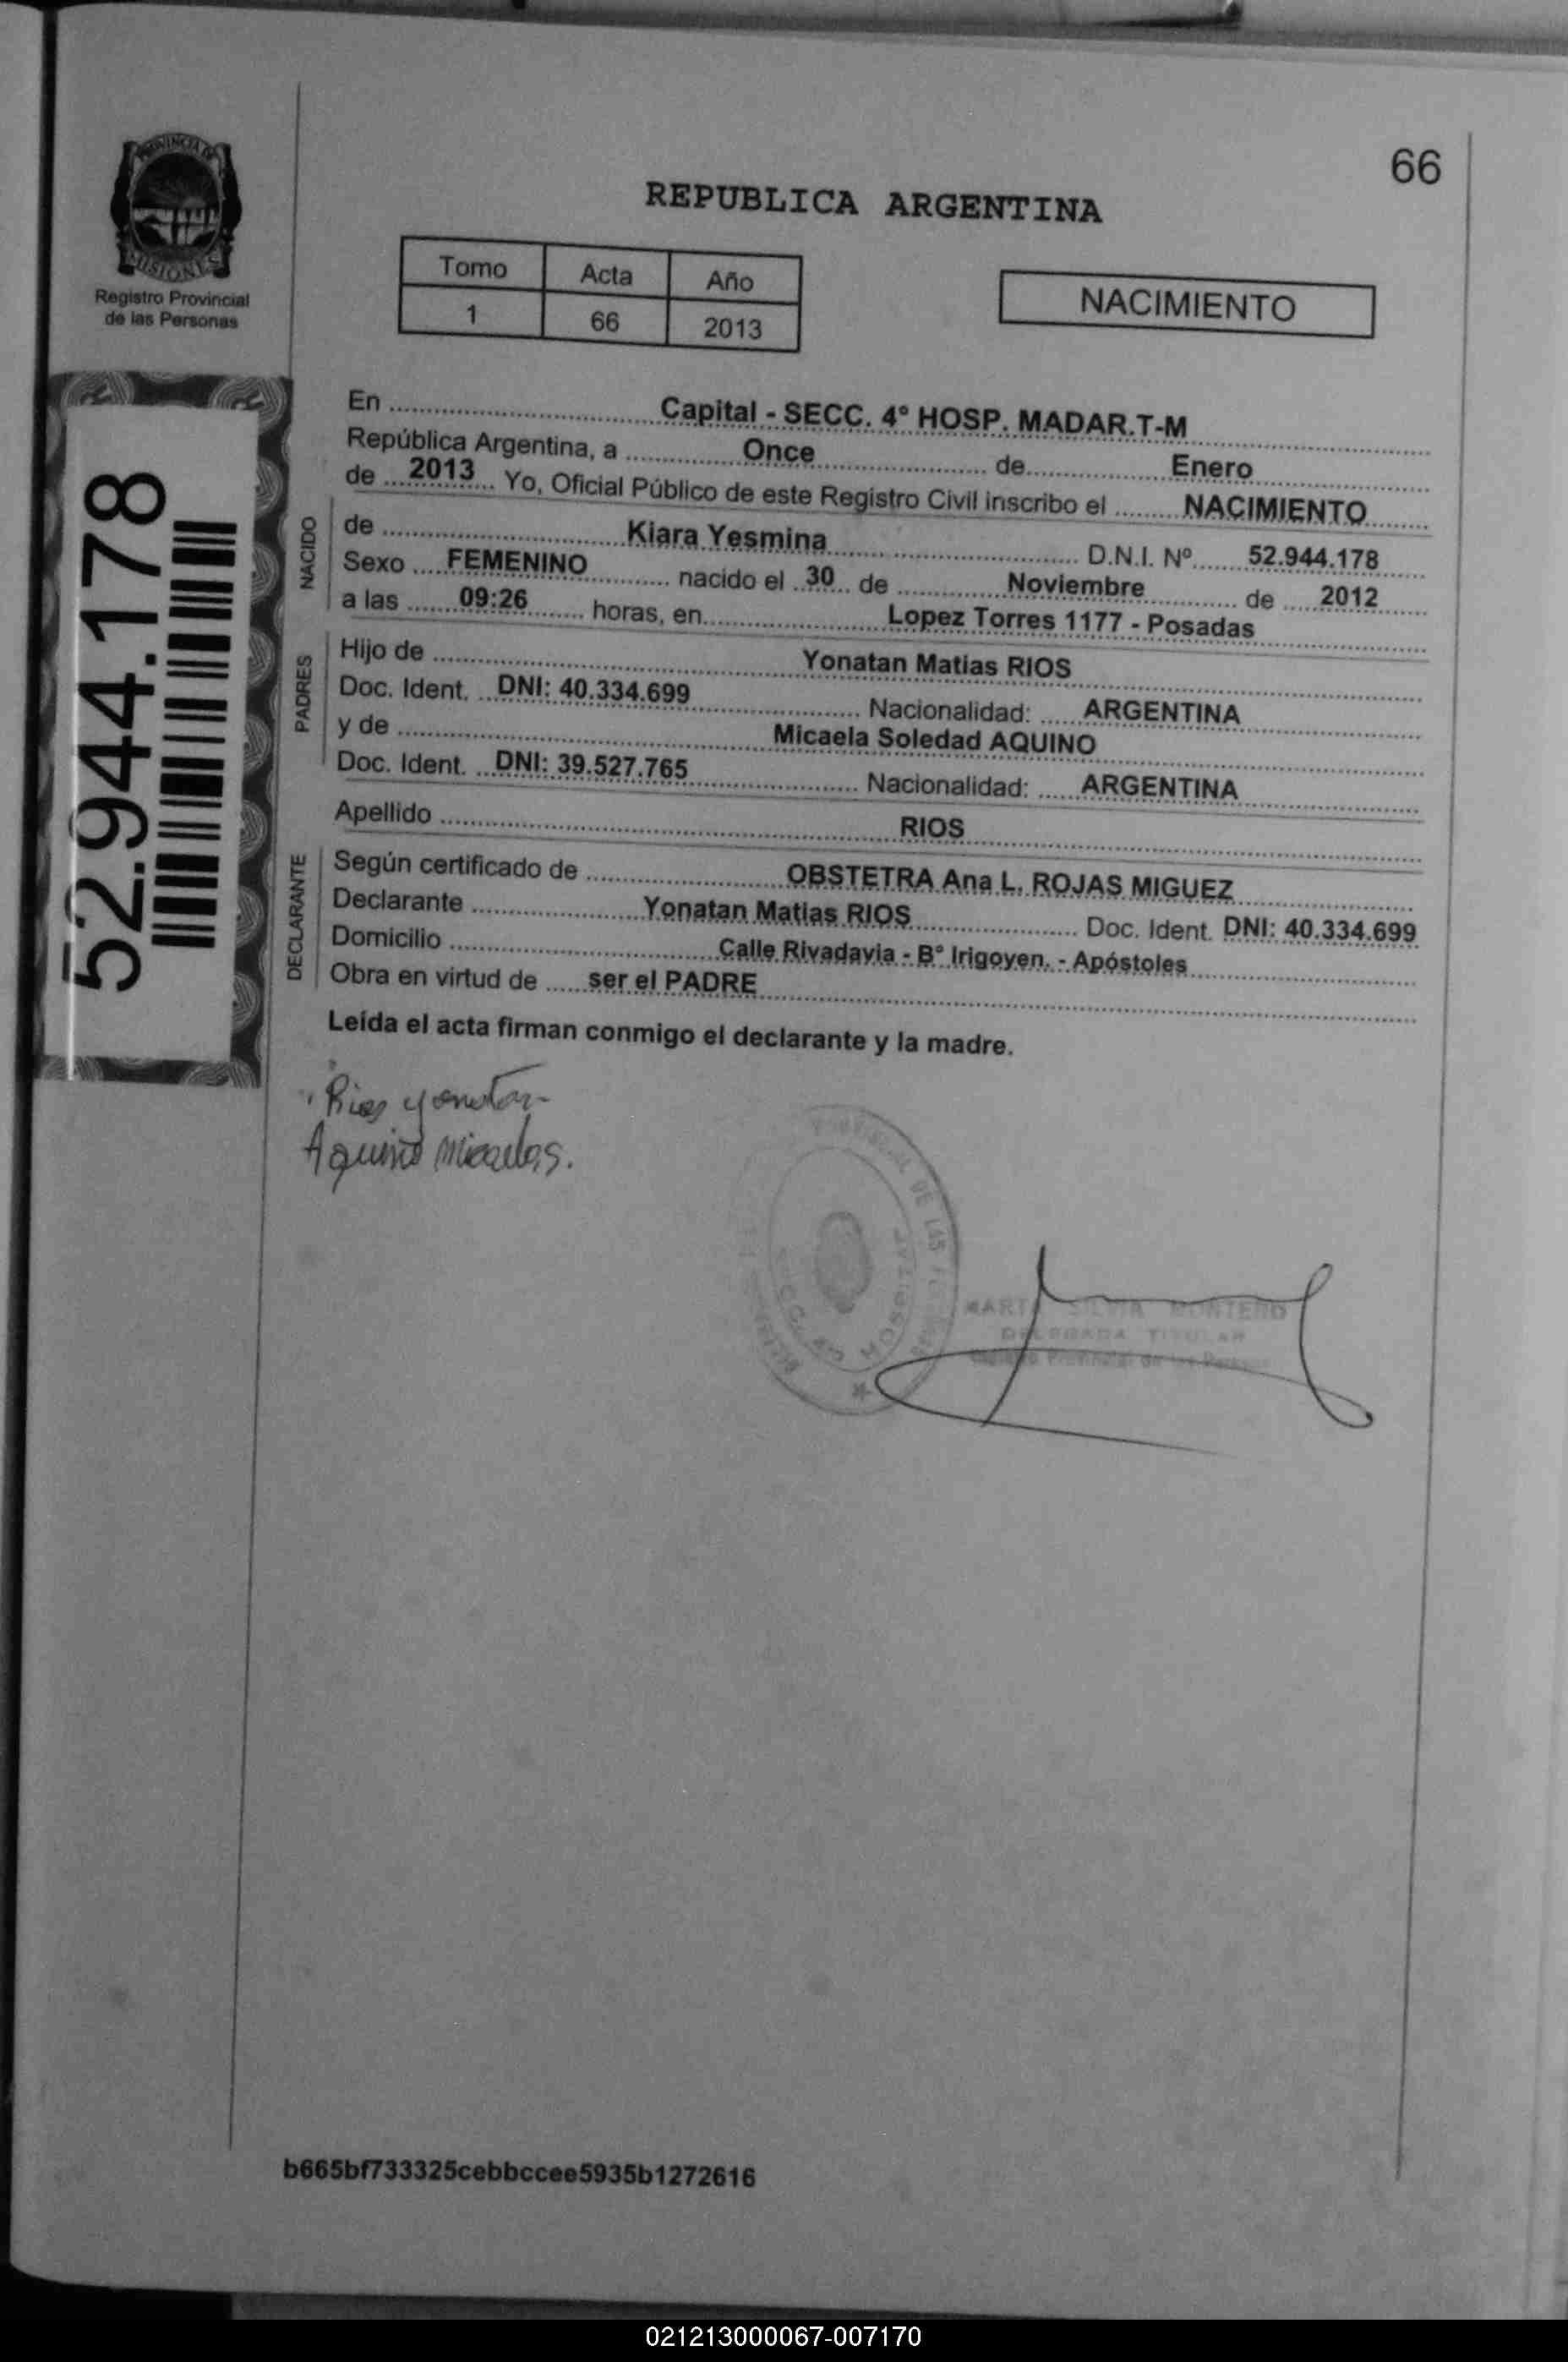 66
PROVINCIA DE
MISIONES
Registro Provincial
de las Personas
REPUBLICA ARGENTINA
Tomo Acta Año
1 66 2013
NACIMIENTO
52.944.178
En Capital - SECC. 4° HOSP. MADAR.T-M
República Argentina, a Once de Enero
de 2013 Yo, Oficial Público de este Registro Civil inscribo el NACIMIENTO
NACIDO
de Kiara Yesmina D.N.I. Nº 52.944.178
Sexo FEMENINO nacido el 30 de Noviembre de 2012
a las 09:26 horas, en Lopez Torres 1177 - Posadas
PADRES
Hijo de Yonatan Matias RIOS
Doc. Ident. DNI: 40.334.699 Nacionalidad: ARGENTINA
y de Micaela Soledad AQUINO
Doc. Ident. DNI: 39.527.765 Nacionalidad: ARGENTINA
Apellido RIOS
DECLARANTE
Según certificado de OBSTETRA Ana L. ROJAS MIGUEZ
Declarante Yonatan Matias RIOS Doc. Ident. DNI: 40.334.699
Domicilio Calle Rivadavia - B° Irigoyen. - Apóstoles
Obra en virtud de ser el PADRE
Leída el acta firman conmigo el declarante y la madre.
Rios yonatan
Aquino Micaela S.
DE LAS
HOSPITAL
SILVIA MONTERO
DELEGADA TITULAR
Provincial de las Personas
b665bf733325cebbccee5935b1272616
021213000067-007170